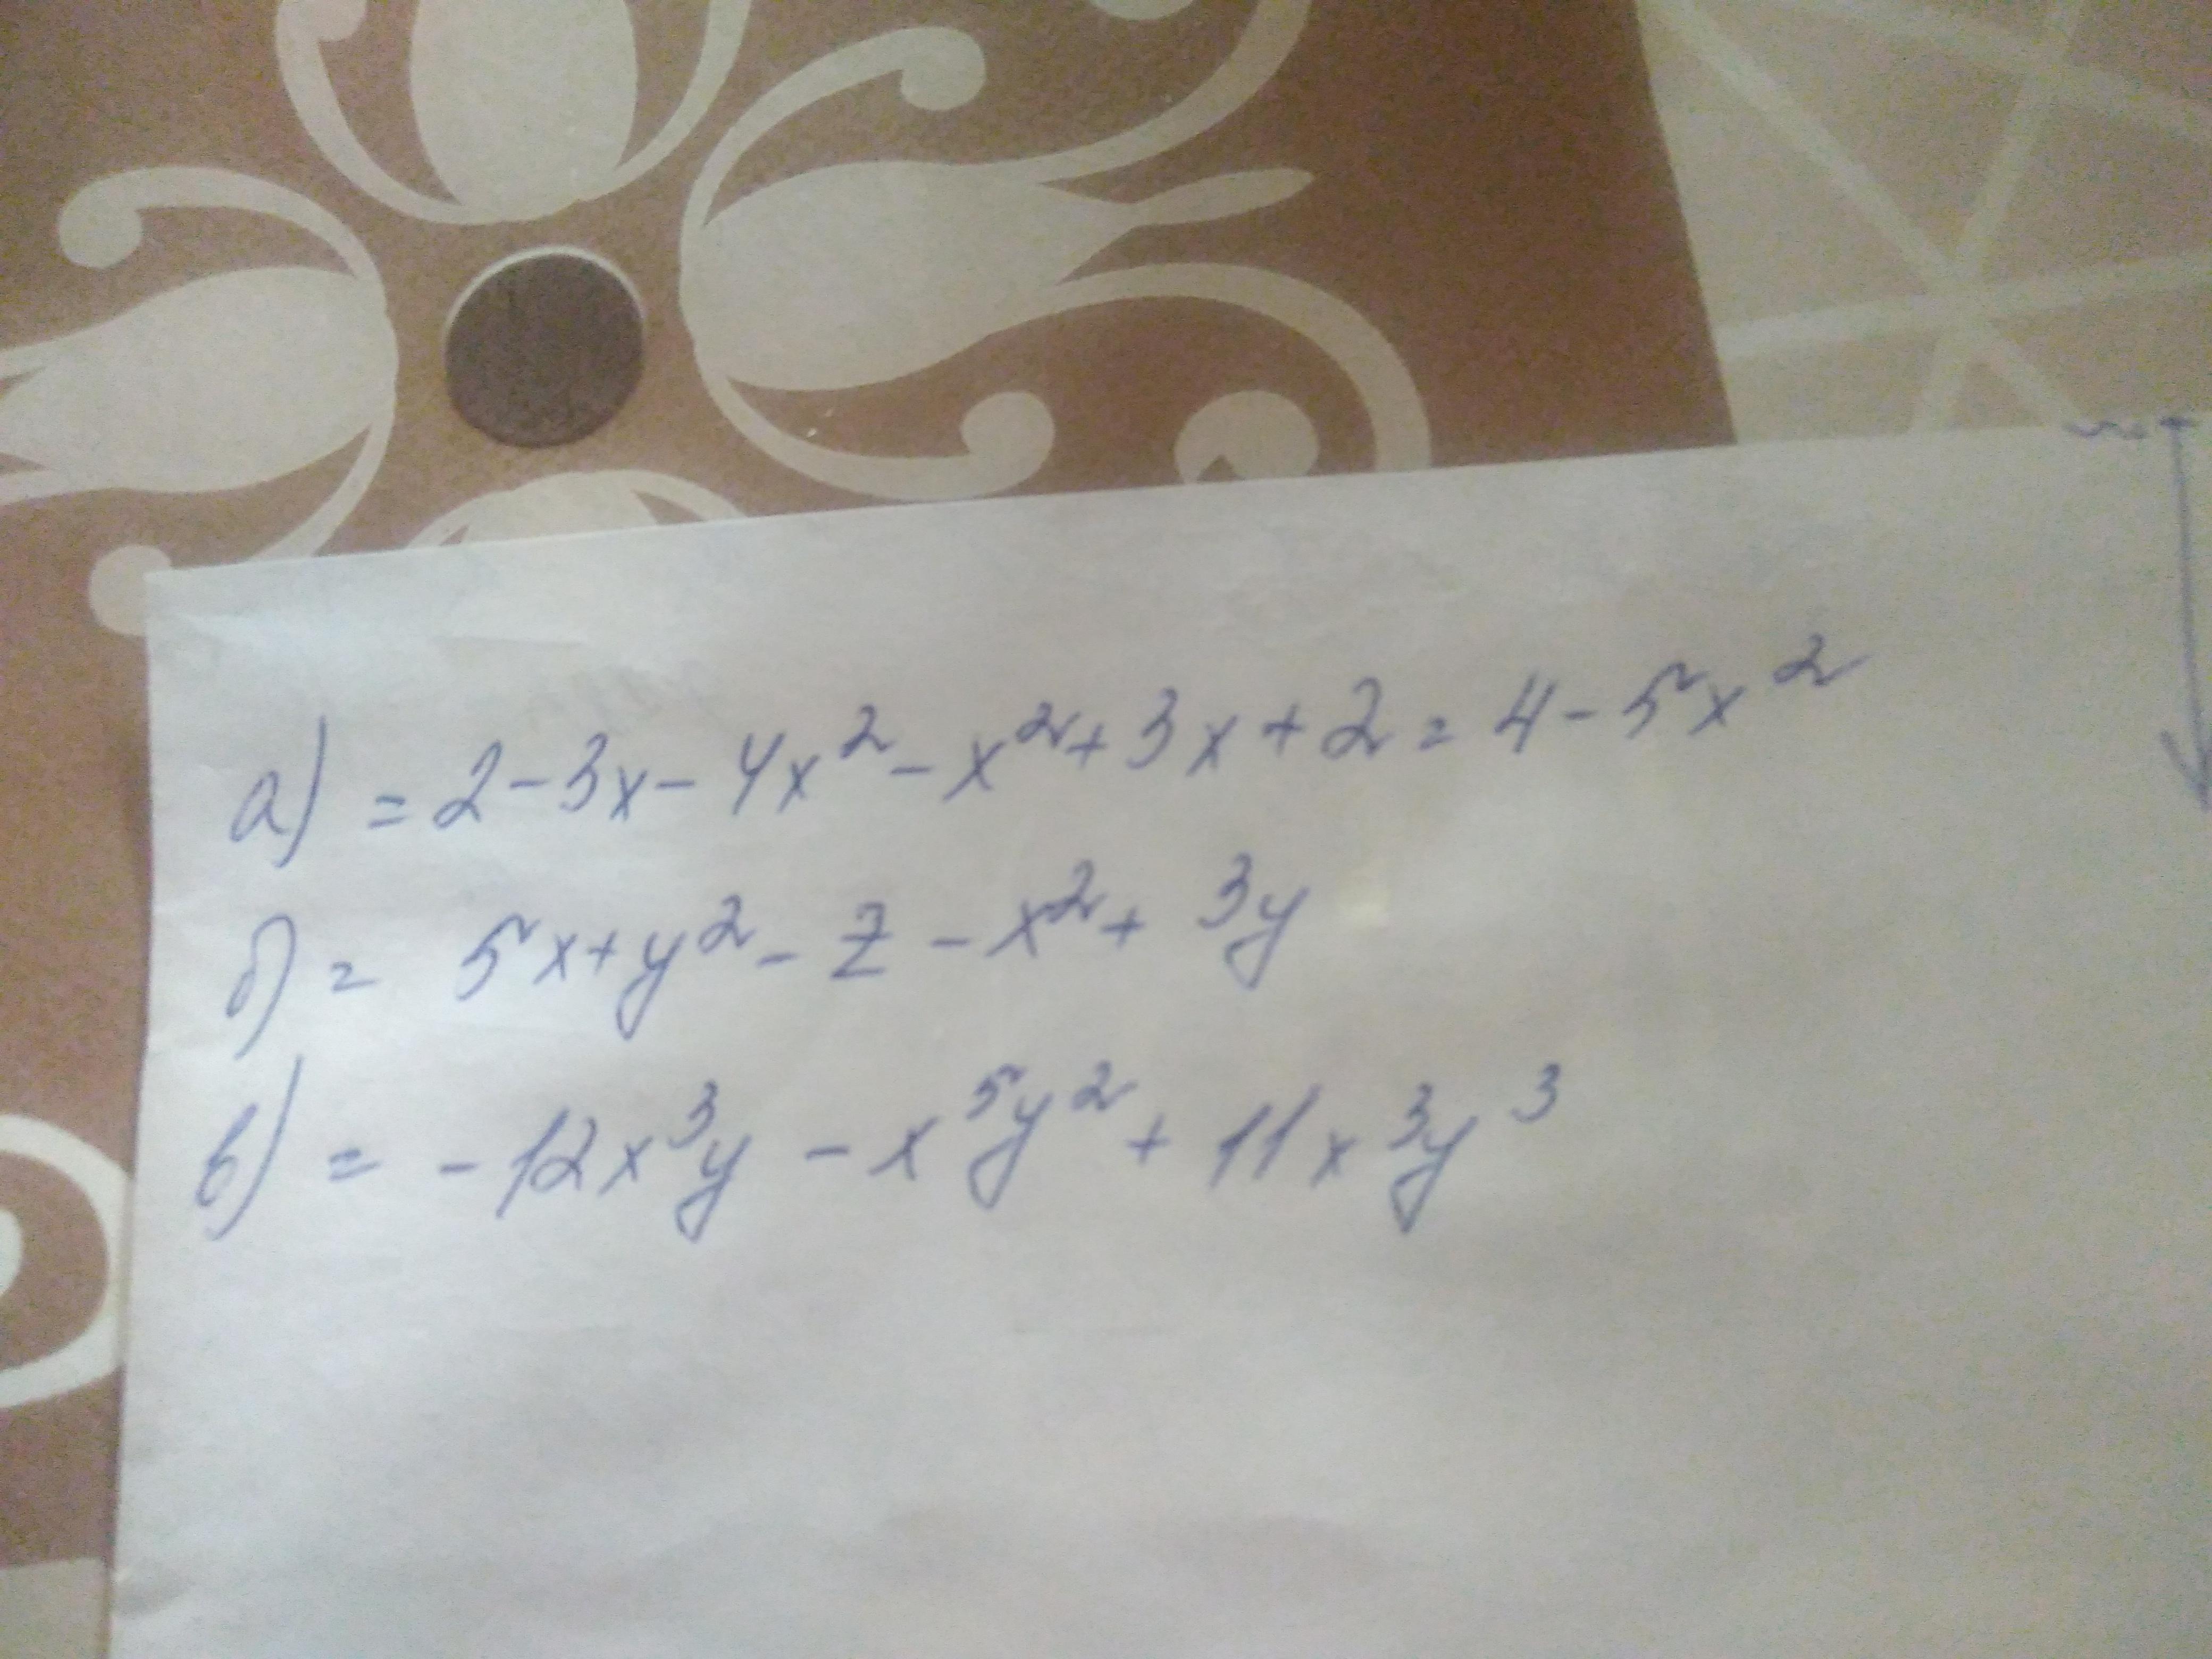 а) = 2 - 3x - 4x² - x² + 3x + 2 = 4 - 5x²
б) = 5x + y² - z - x² + 3y
в) = - 12x³y - x⁵y² + 11x³y³